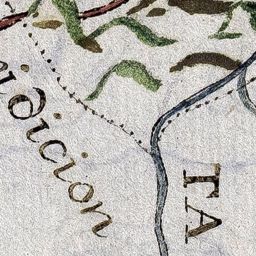 dicion
TA